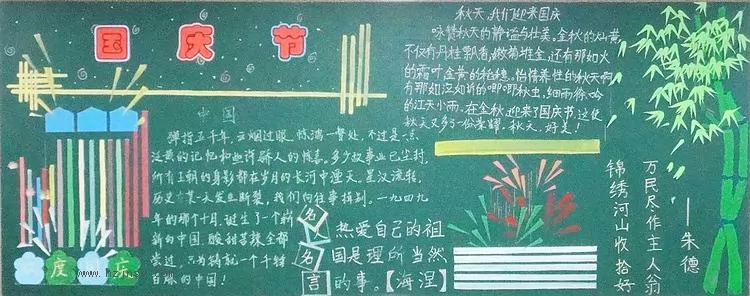 国庆节
中国
弹指五千年，云烟过眼，惊鸿一瞥处，不过是一点
泛黄的记忆和些许醉人的惊喜。多少故事业已尘封，
所有王朝的身影都在岁月的长河中湮灭。星汉流转，
历史
我们向往事挥别。一九四九
年的那个十月，诞生了一个崭
新的中国。酸甜苦辣全都
尝过，只为铸就一个千锤
百炼的中国！
度
www.hz
名
人
名
言
热爱自己的祖
国是理所当然
的事。【海涅】
秋天，我们迎来国庆
咏赞秋天的静谧与壮美。金秋的灿黄，
不仅有丹桂飘香，嫩菊堆金，还有那如火
的霜叶，金黄的稻穗，怡情养性的秋天啊
有那如泣如诉的唧唧秋虫，细雨
吟
的江天小雨。在金秋，迎来了国庆节，这使
秋天又多了一份荣耀。秋天，好美！
锦绣河山收拾好
万民尽作主人翁
——朱德